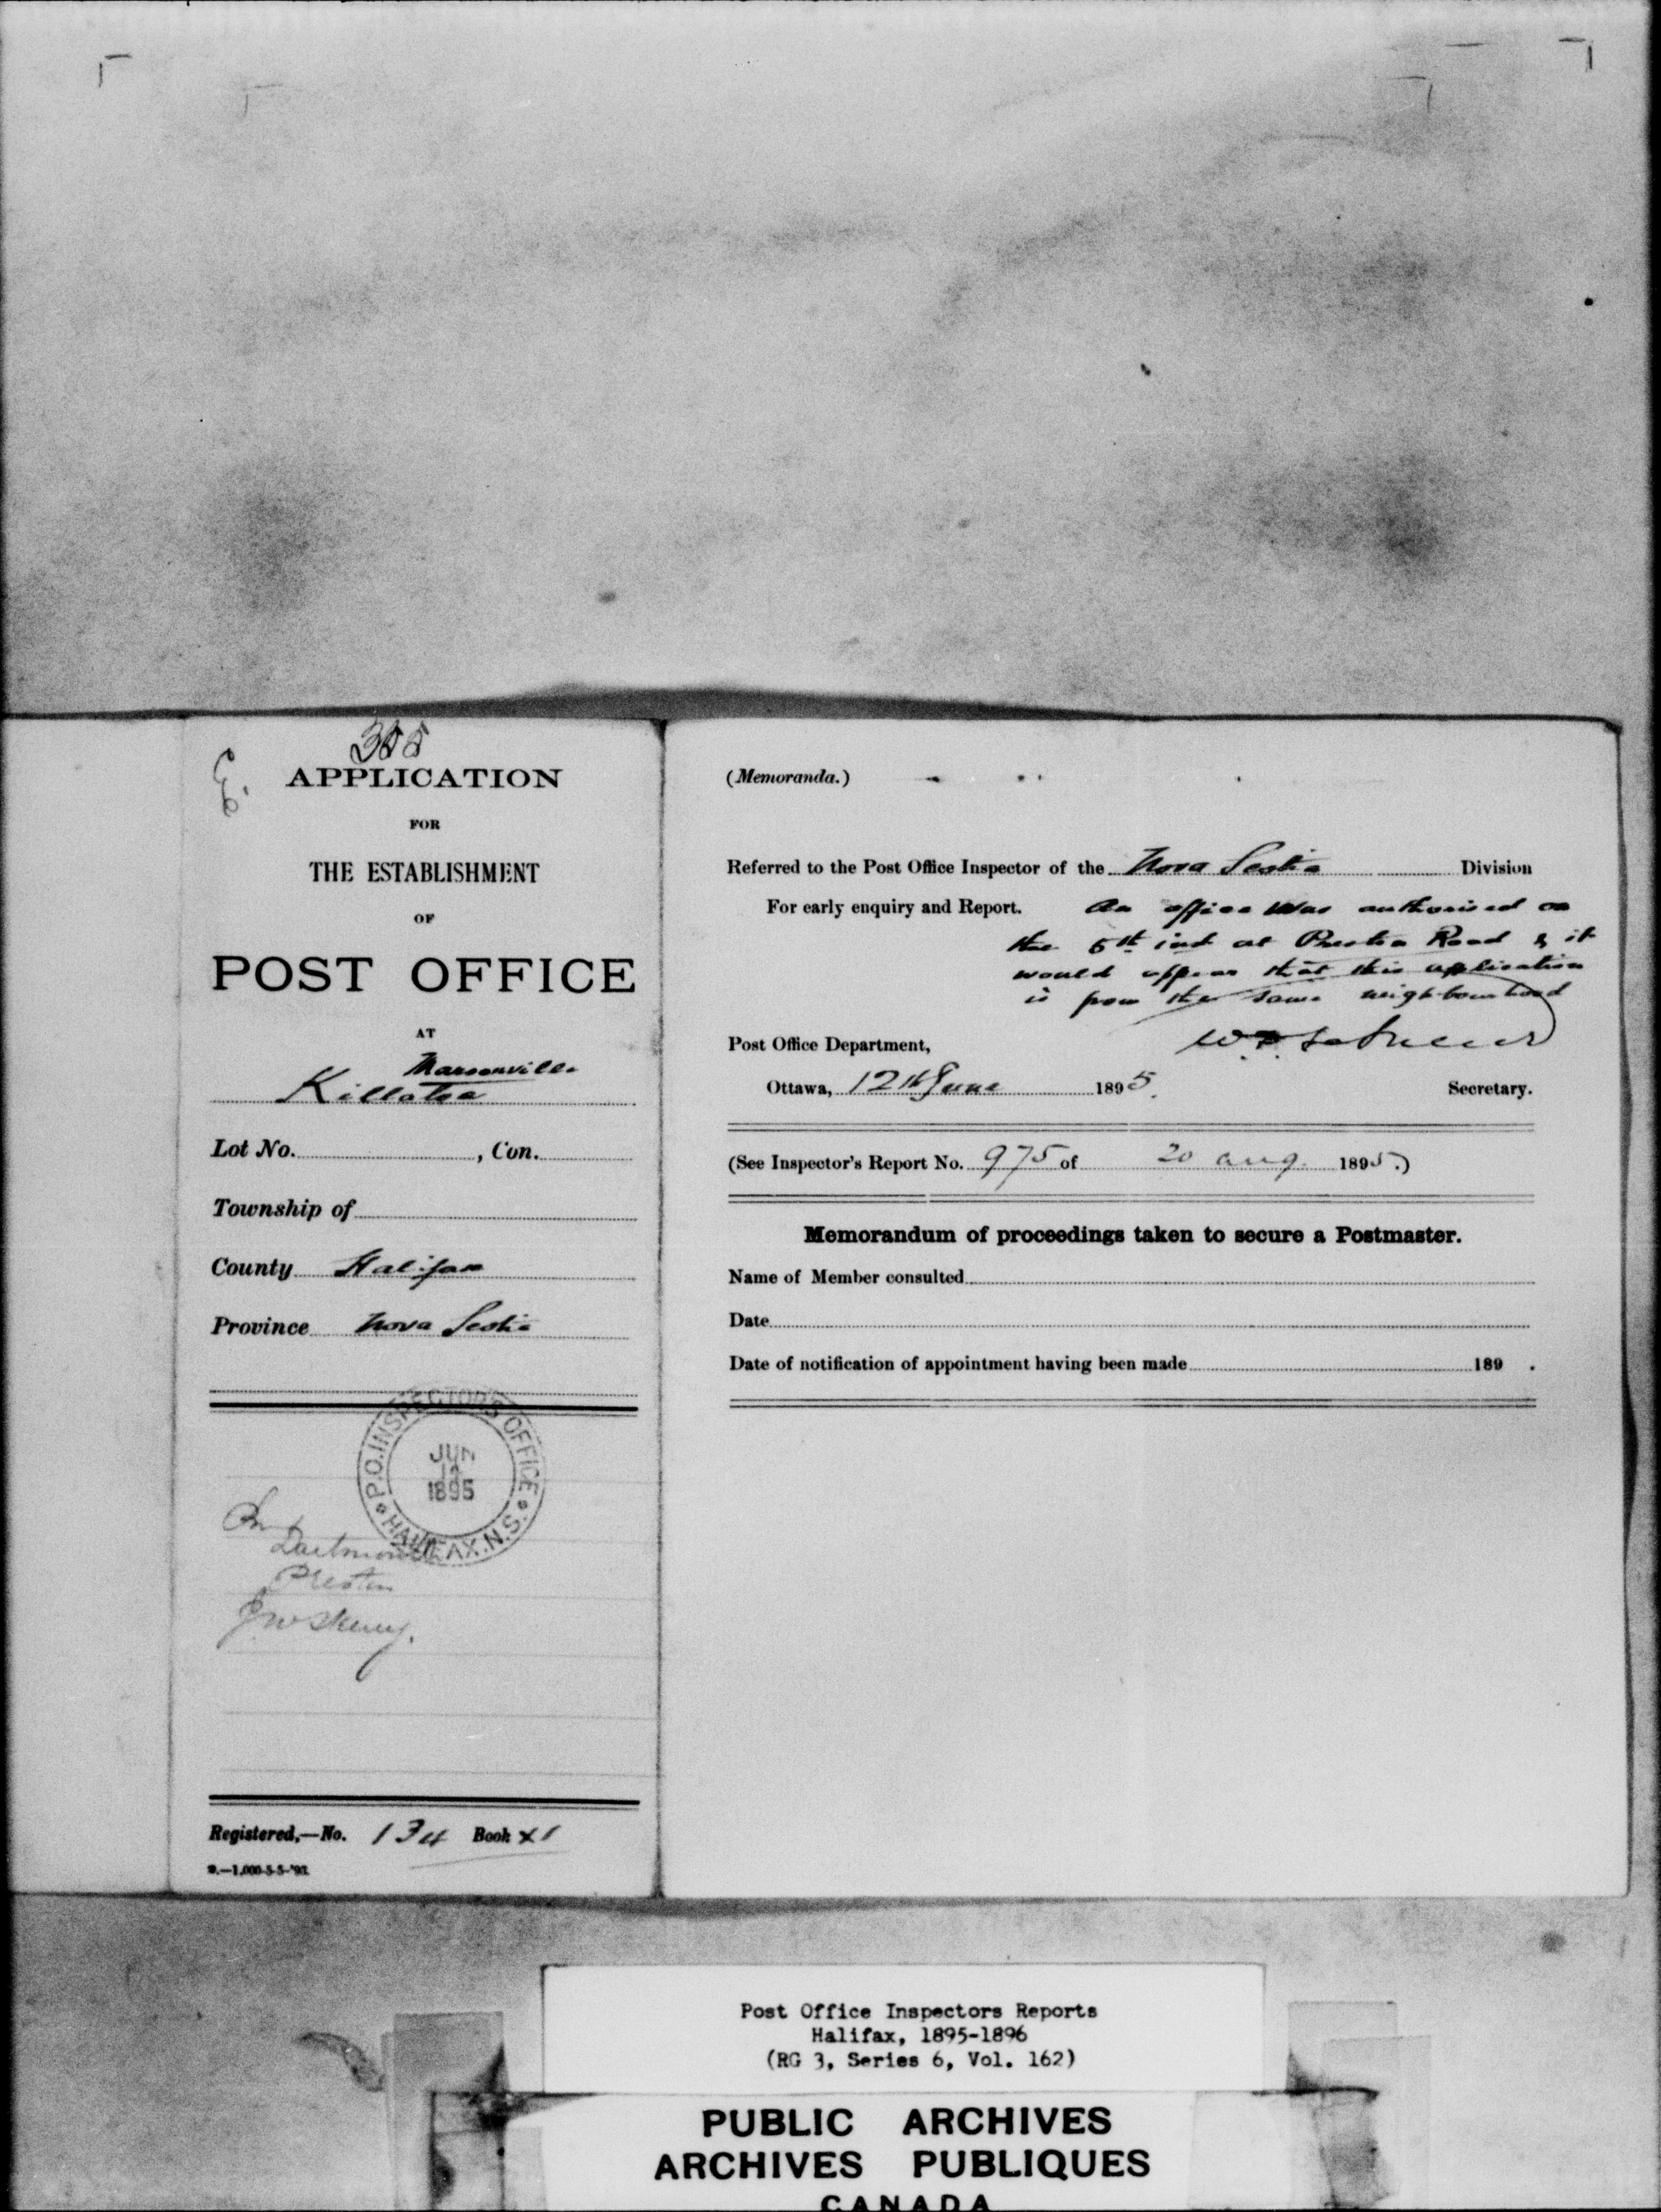 355
E.
APPLICATION
FOR
THE ESTABLISHMENT
OF
POST OFFICE
AT
Marsonville
Killaloe
Lot No. , Con.
Township of
County Halifax
Province Nova Scotia
P.O. INSPECTOR'S OFFICE
JUN
1895
HALIFAX. N.S.
Dartmouth
Preston
Registered,—No. 134 Book X1
1,000-5-5-'93.
(Memoranda.)
Referred to the Post Office Inspector of the Nova Scotia Division
For early enquiry and Report. An office was authorised on
the 5th inst at Preston Road & it
would appear that this application
is from the same neighbourhood
Post Office Department,
Ottawa, 12th June 1895.
Secretary.
(See Inspector's Report No. 975 of 20 aug. 1895.)
Memorandum of proceedings taken to secure a Postmaster.
Name of Member consulted
Date
Date of notification of appointment having been made 189 .
Post Office Inspectors Reports
Halifax, 1895-1896
(RG 3, Series 6, Vol. 162)
PUBLIC ARCHIVES
ARCHIVES PUBLIQUES
CANADA